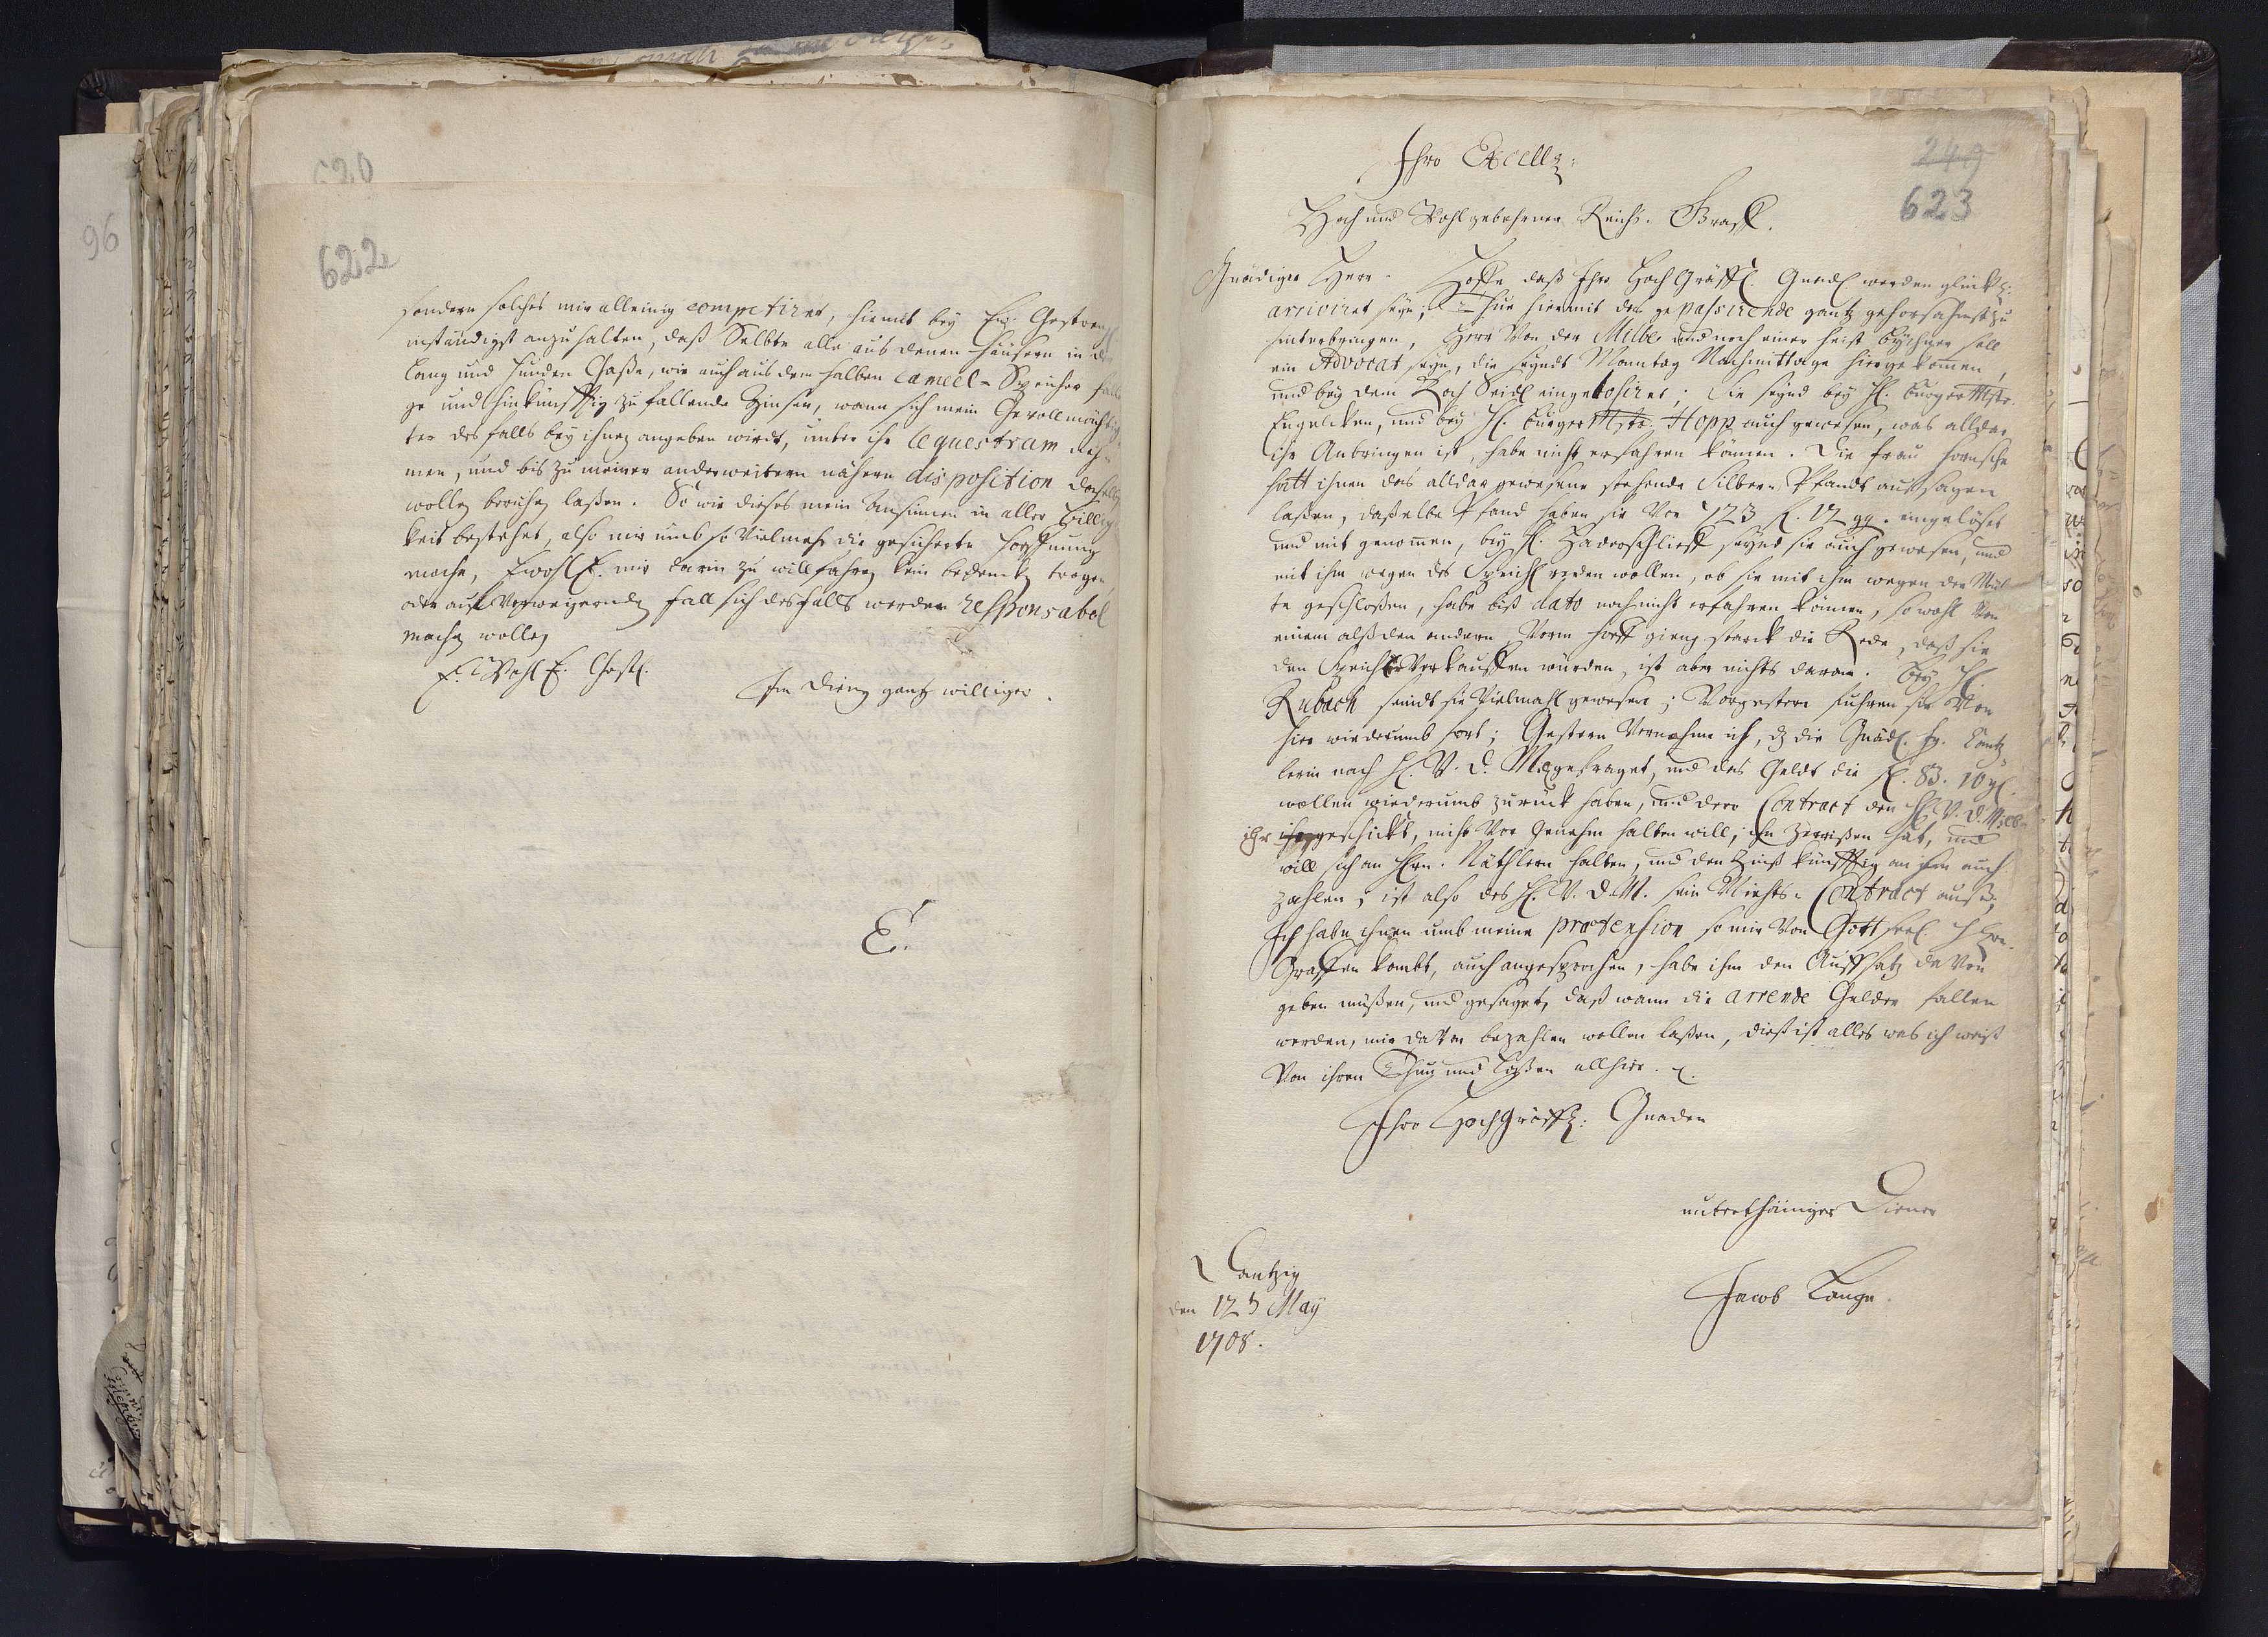 620
96
622
sondern solches mir alleinig competiret, hiemit bey Ew. Gestreng
inständigst anzuhalten, daß Selbte alle aus denen Häusern in der
Lang und Hunden Gaße, wie auch aus dem halben Cameel-Speicher fälli
ge und hinkünfftig zu fallende Zinsen, wann sich mein Gevollmächtig
ter desfalls bey ihnen angeben wirdt, unter ihr sequestram neh
men, und bis zu meiner anderweitern nähern disposition daselbst
wollen beruhen laßen. So wie dieses mein Ansinnen in aller Billig
keit bestehet, also mir umb so Vielmehr die gesicherte Hoffnung
mache, Ewohl E. mir darin zu willfahren kein bedencken tragen
oder auf Verweigernden fall sich desfalls werden responsabel
machen wollen
E. Wohl E. Gestr.
Im Dienen gantz williger.
E.
249
623
Ihro Excell:
Hoch und Wohlgebohrner Reichs-Graff.
Gnädiger Herr. Hoffe daß Ihro HochGräffl. Gnad. werden glückl:
arriviret seyn; Thue hiermit das gepassirende gantz gehorsahmst zu
hinterbringen, Herr Von der Mülbe und noch einer heist soll
ein Advocat seyn, die seyndt Monntag Nachmittage hiergekomen,
und bey dem Koch Seidl eingelosiret; Sie seynd bey H. BurgerMstr.
Engelcken, und bey H. BurgerMstr. Hopp auch gewesen, was alldar
ihr Anbringen ist, habe nicht erfahren können. Die Frau
hatt ihnen das alldar gewesene stehende Silber-Pfandt aufsagen
laßen, daßelbe Pfand haben sie Vor 723 f. 12 gg. eingelöset
und mit genomen, bey H. Zaderschlieff seynd sie auch gewesen, und
mit ihm wegen des Speich. reden wollen, ob sie mit ihm wegen der Mie
te geschloßen, habe biß dato noch nicht erfahren können, sowohl Von
einem alß den andern, Vorm Hoeff gieng starck die Rede, daß sie
den Speicher Verkauffen würden, ist aber nichts daran. Bey H.
Rubach seindt sie Vielmahl gewesen; Vorgestern fuhren sie Von
hier wiederumb fort; Gestern Vernahm ich, dz die Gnäd. Fr. Cantz
lerin nach H. V. d. M. gefraget, und das Geldt die f. 83. 10 gl.
wollen wiederumb zurück haben, und dero Contract den H. V. d. Mülbe
ihr geschickt, nicht Vor genehm halten will, ihn zerrißen hat, und
will sich an Hrn. Näthlern halten, und den Zinß künfftig an ihn auch
zahlen; ist also des H. V. d. M. sein Miehts-Contract auß;
Ich habe ihnen umb meine prætension so mir Von Gott seel. Hrn.
Graffen kombt, auch angesprochen, habe ihm den Auffsatz da Von
geben müßen, und gesaget, daß wann die arrende Gelder fallen
werden, mir da Von bezahlen wollen laßen, dieß ist alles was ich weiß
Von ihren Thun und Laßen allhier.
Ihro HochGräffl: Gnaden
unterthäniger Diener
Jacob Lange.
Dantzig
den 12 May
1708.